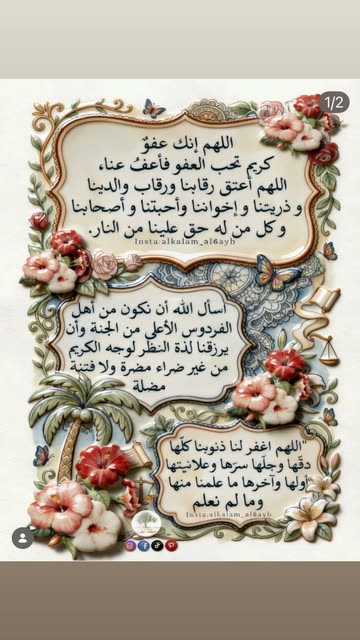 1/2
اللهم إنك عفوٌ
كريم تحب العفو فأعفُ عنا،
اللهم أعتق رقابنا ورقاب والدينا
و ذريتنا و إخواننا وأحبتنا و أصحابنا
و كل من له حق علينا من النار.
Insta:alkalam_al6ayb
اسأل الله أن نكون من أهل
الفردوس الأعلى من الجنة وأن
يرزقنا لذة النظر لوجه الكريم
من غير ضراء مضرة ولا فتنة
مضلة
"اللهم اغفر لنا ذنوبنا كلّها
دقّها وجلّها سرّها وعلانيتها
أولها وآخرها ما علمنا منها
وما لم نعلم
Insta:alkalam_al6ayb